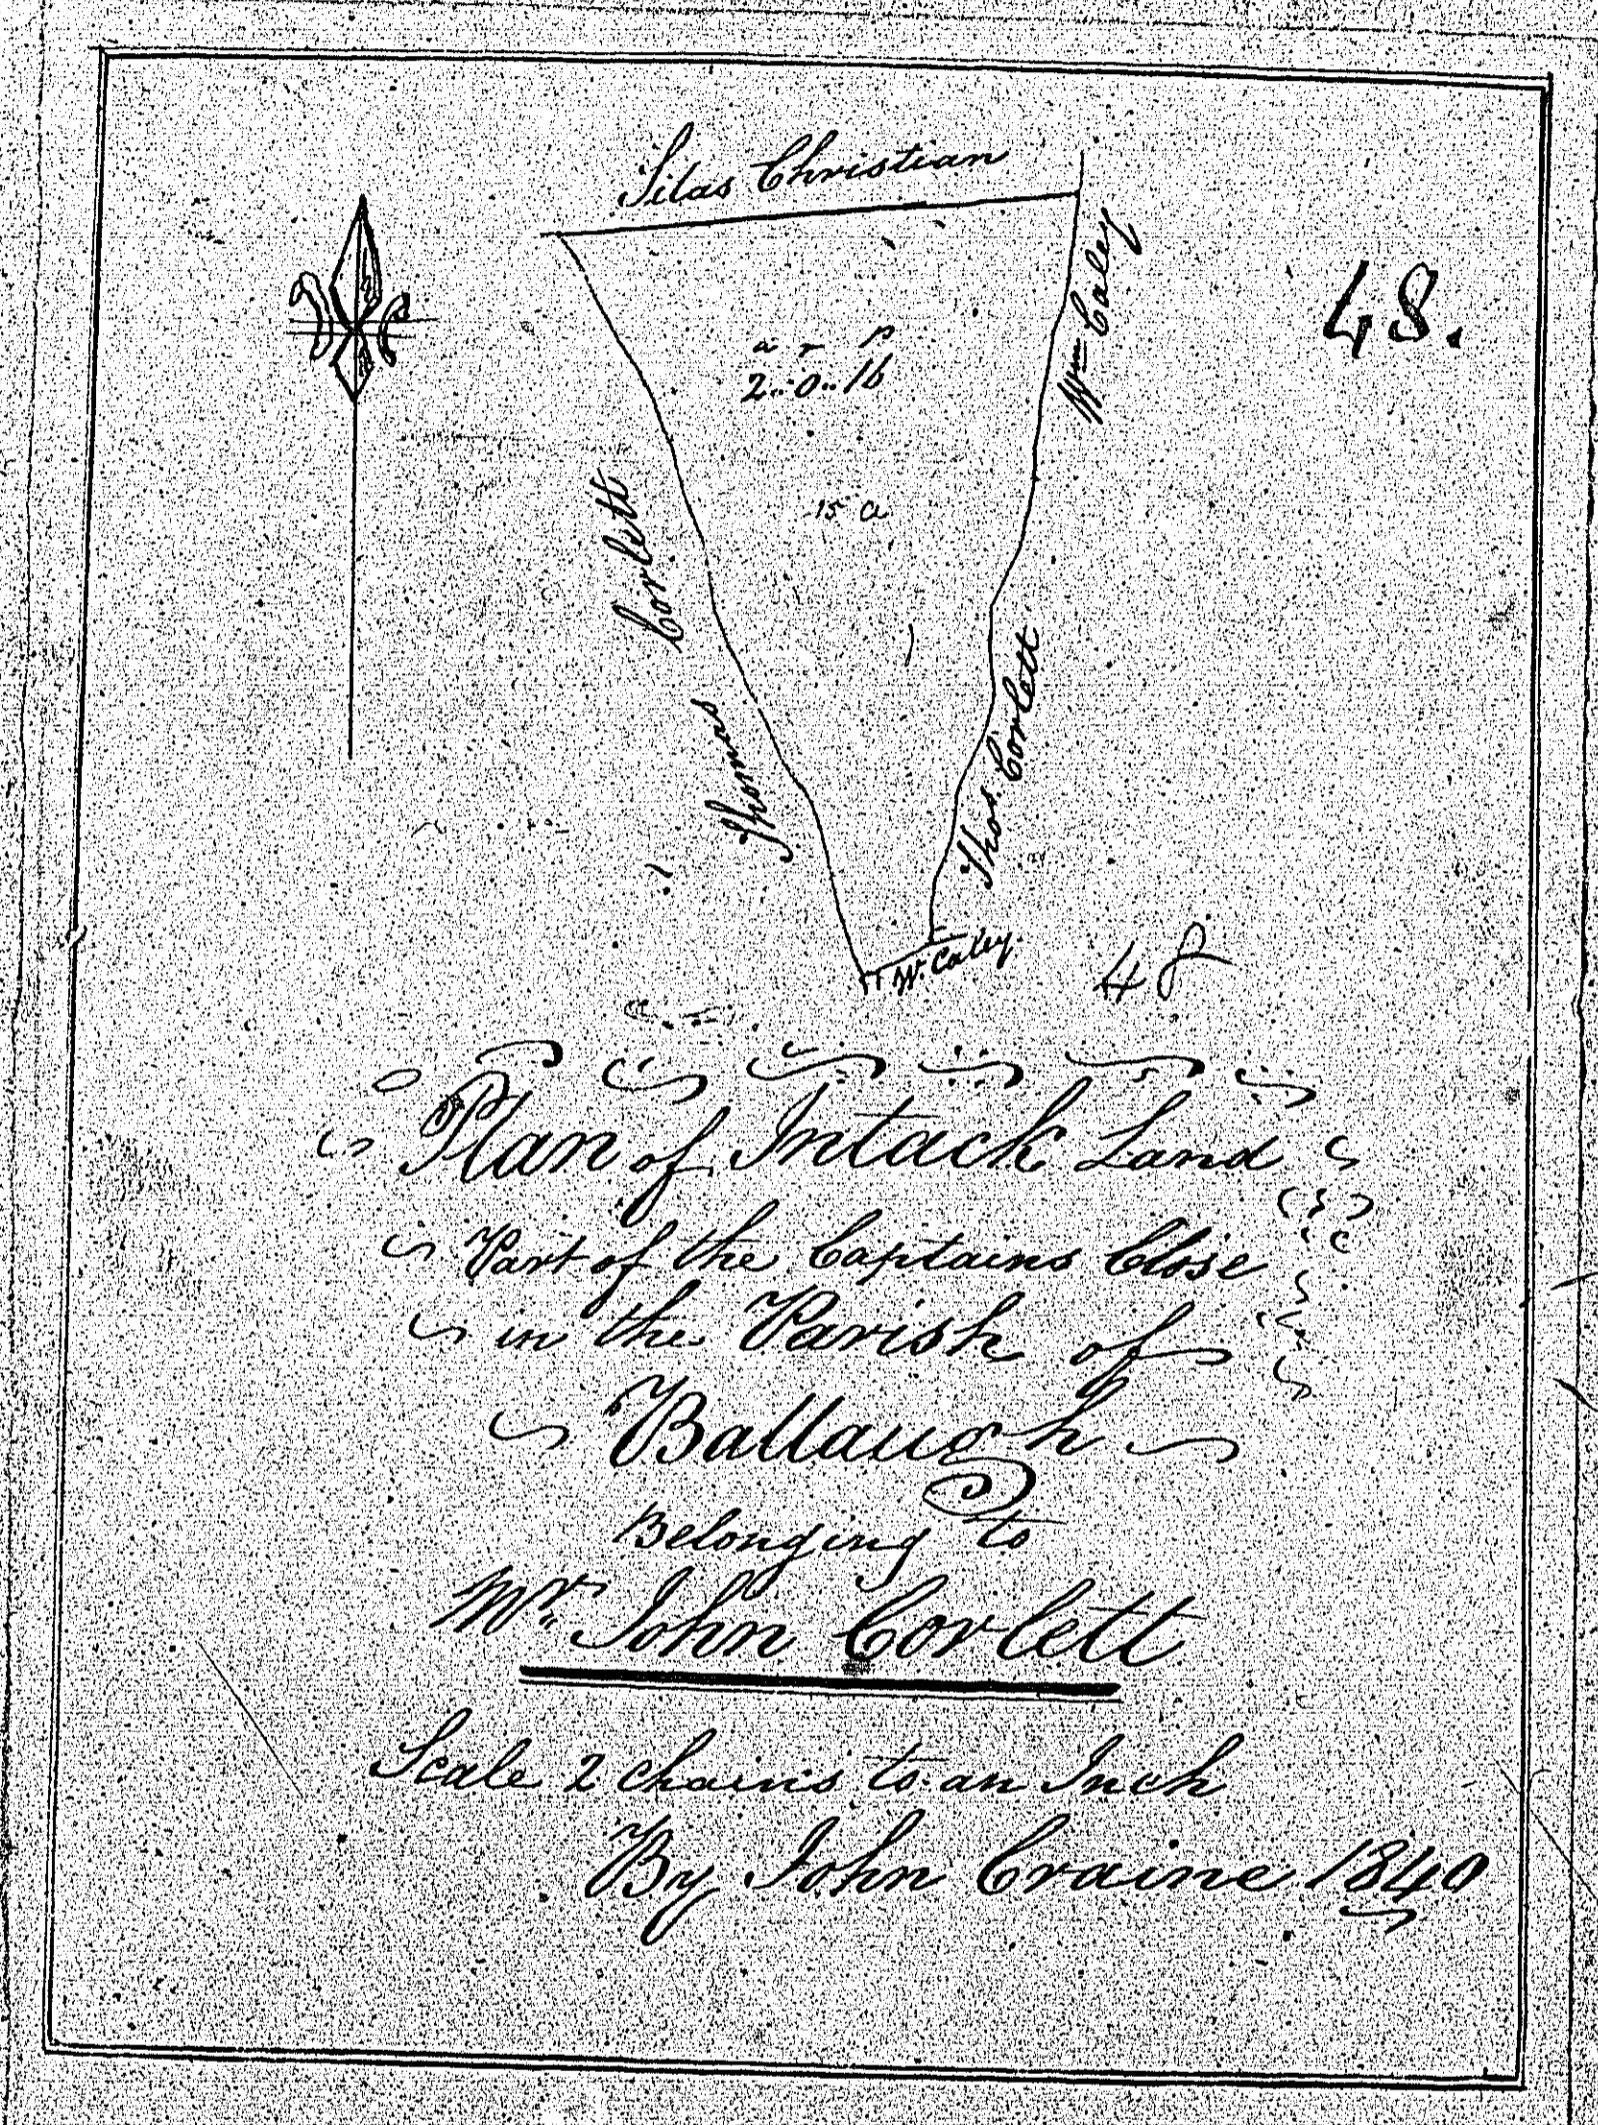 Silas Christian
Wm Caley
48.
a r p
2..0..16
15 a
Thomas Corlett
Thos. Corlett
W. Caley.
48
Plan of Intack Land
Part of the Captains Close
in the Parish of
Ballaugh
Belonging to
Mr. John Corlett
Scale 2 chains to an Inch
By John Craine 1840